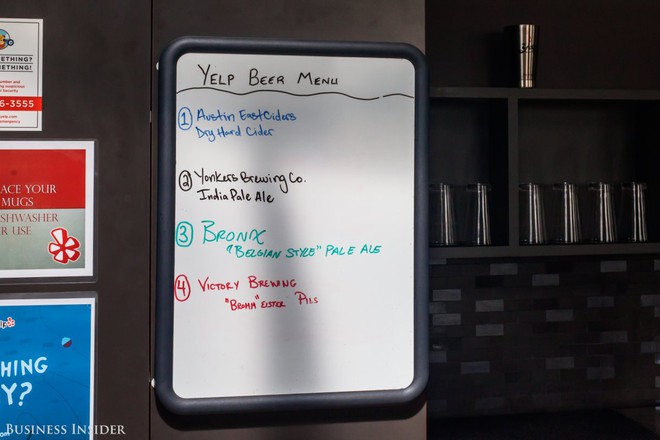 ETHING?
ETHING!
6-3555
ACE YOUR
MUGS
SHWASHER
R USE
HING
Y?
YELP BEER MENU
1 Austin EastCiders
Dry Hard Cider
2 Yonkers Brewing Co.
India Pale Ale
3 BRONX
"BELGIAN STYLE" PALE ALE
4 VICTORY BREWING
PILS
BUSINESS INSIDER